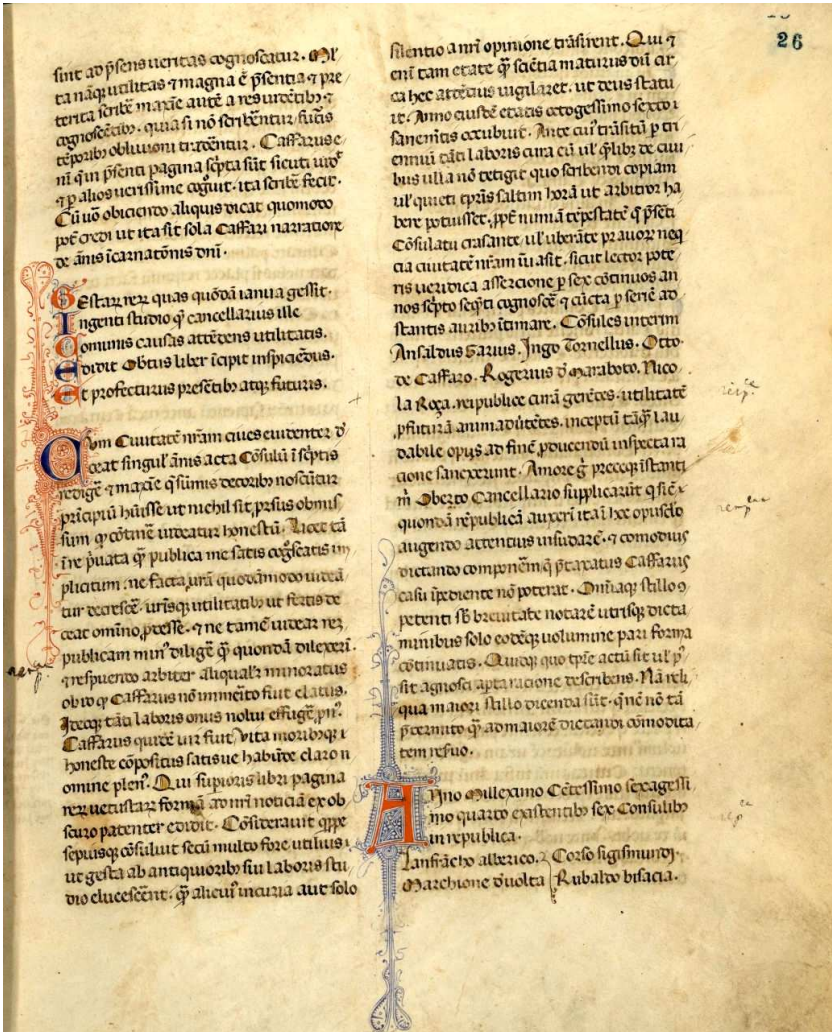 26
sint ad p̃sens ueritas cognoscatur. Ml̃
ta nãq; utilitas ⁊ magna ẽ p̃sentia ⁊ pre
terita scribẽ maxĩe autẽ a res uidẽtib; ⁊
cognoscẽtib;. quia si nõ scribẽntur / futis
tẽporib; obliuioni tradẽntur. Caffarus e
nĩ q̃ in p̃senti pagina sc̃pta sũt sicuti uidᵗ
⁊ ꝑ alios uerissime cogũit. ita scribẽ fecit.
Cũ uõ obiciendo aliquis dicat quomodo
potẽ credi ut ita sit sola Caffari narratione
de ãnis ĩcarnatõnis dnĩ.
Gestaꝝ reꝝ quas quõdã ianua gessit.
Ingenti studio q̃ cancellarius ille
Comunis causas attẽdens utilitatis.
Edidit Obtus liber ĩcipit inspiciẽdus.
Et profecturus presẽtib; atq; futuris.
Cvm Ciuitatẽ nr̃am ciues euidenter d̾
corat singul̃ ãnis acta Cõsulũ ĩ sc̃ptis
redigẽ ⁊ maxĩe q̃ sũmis decorib; noscũtur
prĩcipiũ hũisse ut nichil sit ꝓrsus obmis
sum ꝙ cõtinẽ uideatur honestũ. Licet tã
ĩ re p̃uata q̃ publica me satis cog̃scatis im
plicitum. ne facta ur̃a quodãmodo uideã
tur decrescẽ. ur̃isq; utilitatib; ut fertis de
ceat omĩno ꝓdesse. ⁊ ne tamẽ uidear reꝝ
publicam min᾽ diligẽ q̃ quondã dilexeri.
⁊ respuendo arbiter aliqual᾽r minoratus
ob id ꝙ Caffarus nõ inmẽito fiut elatus.
Idcꝙ tãti laboris onus nolui effugẽ ꝓñ᾽.
Caffarus quidẽ uir fuit / vita morib;q; i
honeste cõpositus satisue habũde claro n
omine plen᾽. Qui supioris libri pagina
reꝝ uetustaꝝ formã ad nr̃i noticiã ex ob
scuro patenter edidit. Cõsiderauit q̃ppe
sepiusq; cõsuluit secũ multo fore utilius ı
ut gesta ab antiquiorib; siu laboris stu
dio elucescẽnt. q̃ alicui᾽ incuria aut solo
silentio a nr̃i opinione trãsirent. Qui ⁊
enĩ tam etate q̃ sciẽtia maturus diũ cir
ca hec attẽcius uigilaret. ut deus statu
it. Anno eiusdẽ etatis octogessimo sexto ı
sanẽnitis occubuit. Ante cui᾽ trãsitũ ꝑ tri
enniũ tãti laboris cura eũ ul̃ q̃lib; de ciui
bus ulla nõ tetigit quo scribendi copiam
ul̃ quieti tp̃ris saltim horã ut arbitror ha
bere potuisset. ꝓpt̃ nimiã tẽpestatẽ q̃ p̃sẽti
Cõsulatu crassante. ul̃ uberãte prauoꝝ neq
cia ciuitatẽ nr̃am ĩuasit. sicut lector pote
ris ueridica assercione ꝑ sex cõtinuos an
nos sc̃pto seq̃ti cognoscẽ ⁊ cũcta ꝑ seriẽ ad
stantis aurib; ĩtimare. Cõsules interim
Ansaldus Garius. Ingo Tornellus. Otto.
de Caffaro. Rogerius d̾ Maraboto. Nico
la Roça. reipublice curã gerẽtes. utilitatẽ
ꝓfuturã animaduẽtẽtes. inceptũ tãq̃ lau
dabile opus ad finẽ ꝓducendũ inspecta ra
cione sanexerunt. Amore g̾ preceq; ĩstanti
m̃ Oberto Cancellario supplicarũt q̃ sic̃ ı
quondã rẽpublicã auxeri ita ĩ hoc opusclo
augendo actentius insudarẽ. ⁊ comodius
dictando componẽm q̃ p̃taxatus Caffarus
casu ĩpediente nõ poterat. Omĩaq; stillo 9
petenti sb̾ breuitate notarẽ utrisq; dicta
minibus solo eodẽq; uolumine pari forma
cõtinuatis. Quidq; quo tp̃re actũ sit ul̃ p᾽
sit agnosci apta racione describens. Nã reli
qua maiori stillo dicenda sũt. q̃ nẽ nõ tã
p̃termito q̃ ad maiorẽ dictandi cõmodita
tem resuo.
Anno Millexĩmo Cẽtessimo sexagessi
mo quarto existentib; sex Consulib;
in republica.
Lanfrãcho alberico. Corso sigismundi.
Marchione d̾ uolta Rubaldo bisacia.